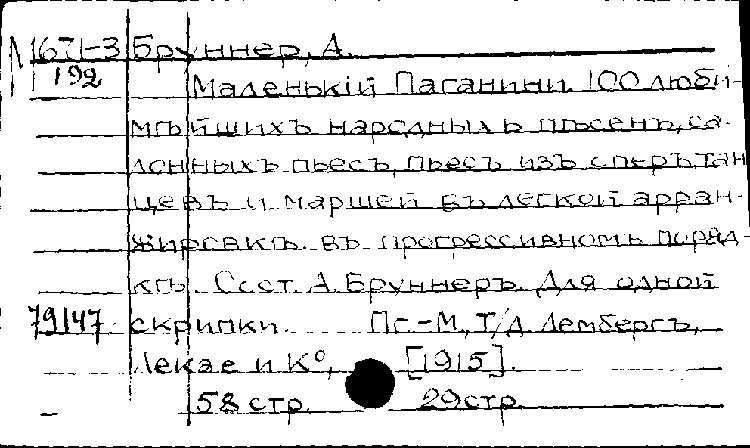 М671-3 Бруннер, А.
192 Маленькій Паганини. 100 люби-
мѣйшихъ народныхъ пѣсенъ, са-
лонныхъ пьесъ, пьесъ изъ оперъ, тан
цевъ и маршей въ легкой арран-
жировкѣ въ прогрессивномъ поряд-
кѣ. Сост. А. Бруннеръ. Для одной
79147 скрипки. Пг.-М., Т/Д Лембергъ,
Лекае и К°, [1915].
58 стр. 29 стр.